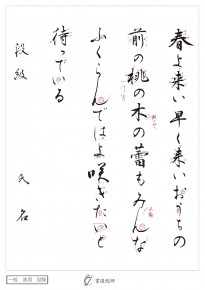 春よ来い早く来いおうちの
前の桃の木の蕾もみんな
ふくらんではよ咲きたいと
待っている
段級 氏名
一般 実用 試験
書道範師